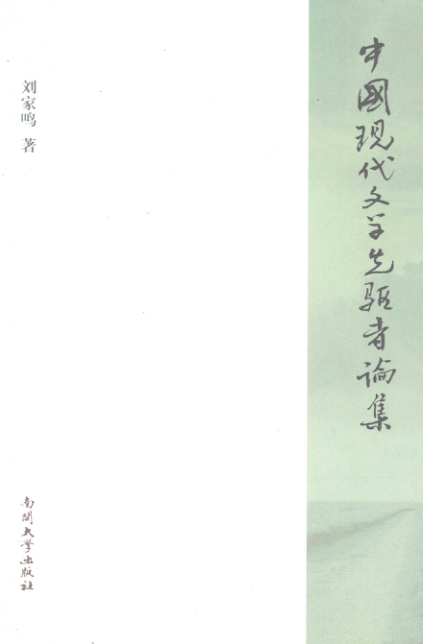 中國现代文学先驱者论集
刘家鸣 著
南開大學出版社